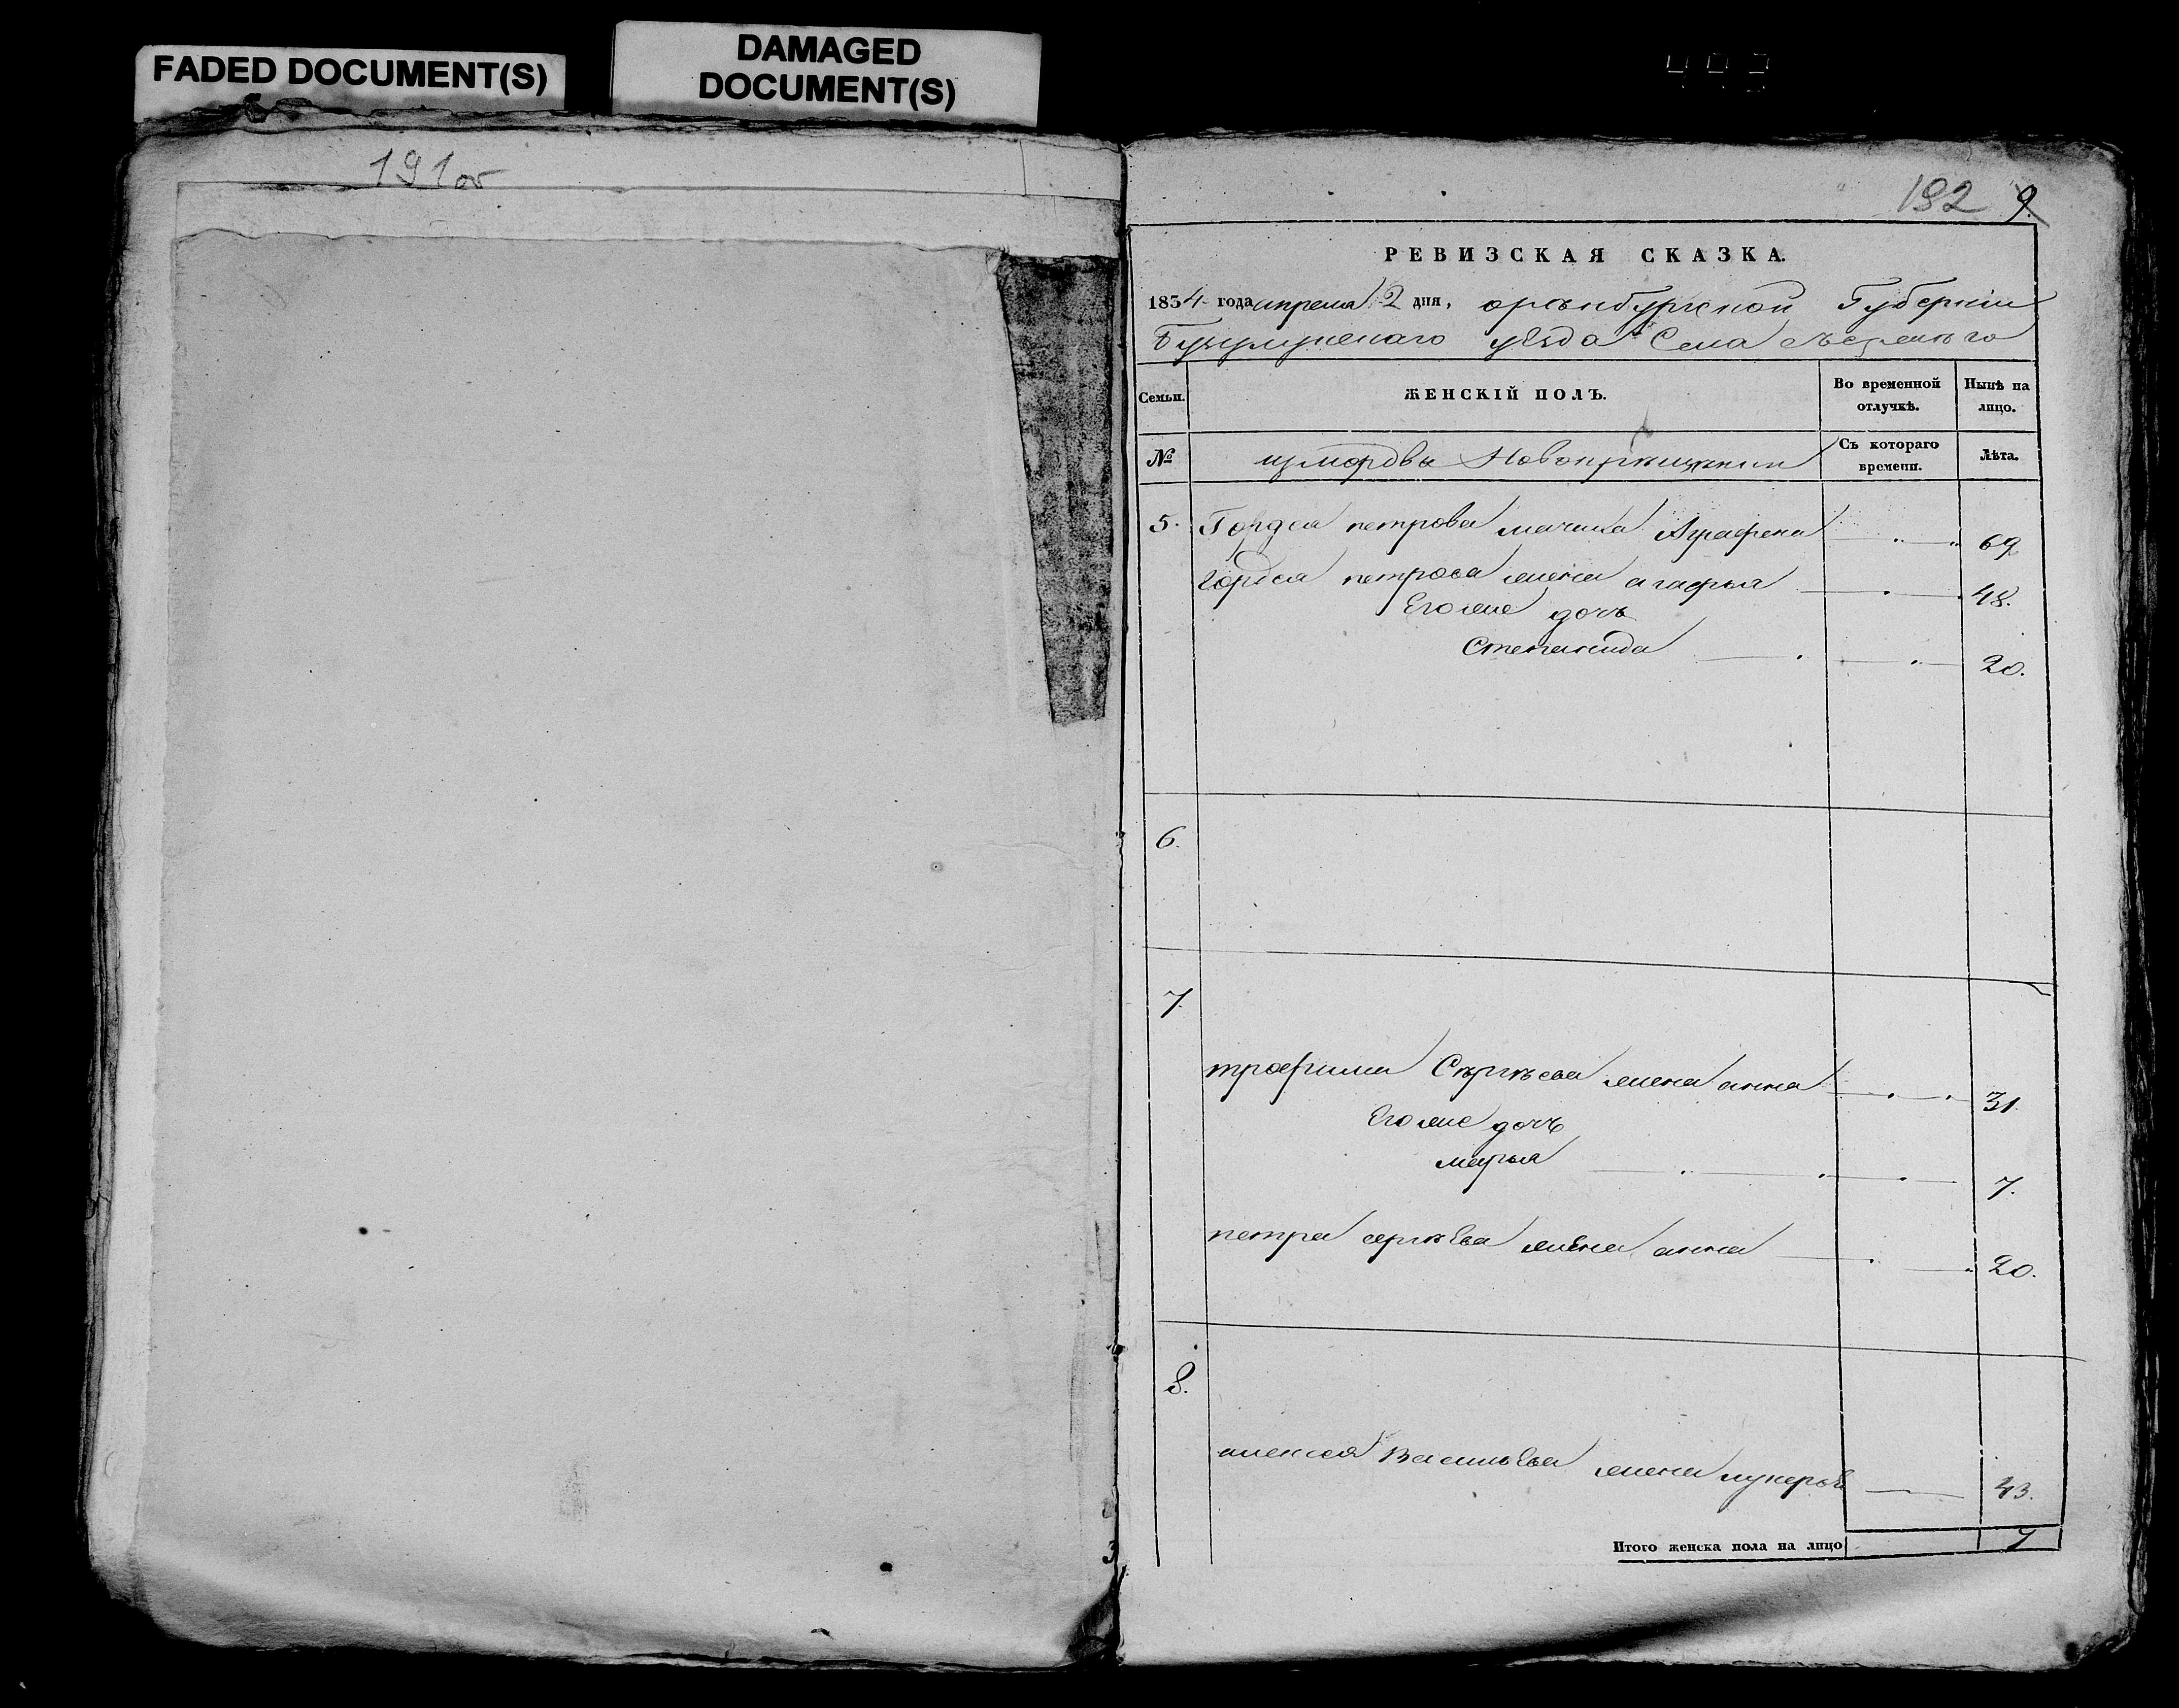 FADED DOCUMENT(S)
DAMAGED
DOCUMENT(S)
191об
192 9.
РЕВИЗСКАЯ СКАЗКА.
1834 года апреля 2 дня, оренбургской Губернии
уезда Села
Семьи.
ЖЕНСКІЙ ПОЛЪ.
Во временной отлучкѣ.
Нынѣ на лицо.
№
измордвы
Съ котораго времени.
Лѣта.
5. Гордея петрова мачиха Аграфена 69
гордея петрова жена агафья 48.
Его же дочь
Степанида 20.
6.
7.
трофима Сергѣева жена анна 31.
Его же дочь
марья 7.
петра сергѣева жена анна 20.
8.
алексея Васильева жена лукерья 43.
Итого женска пола на лицо 7